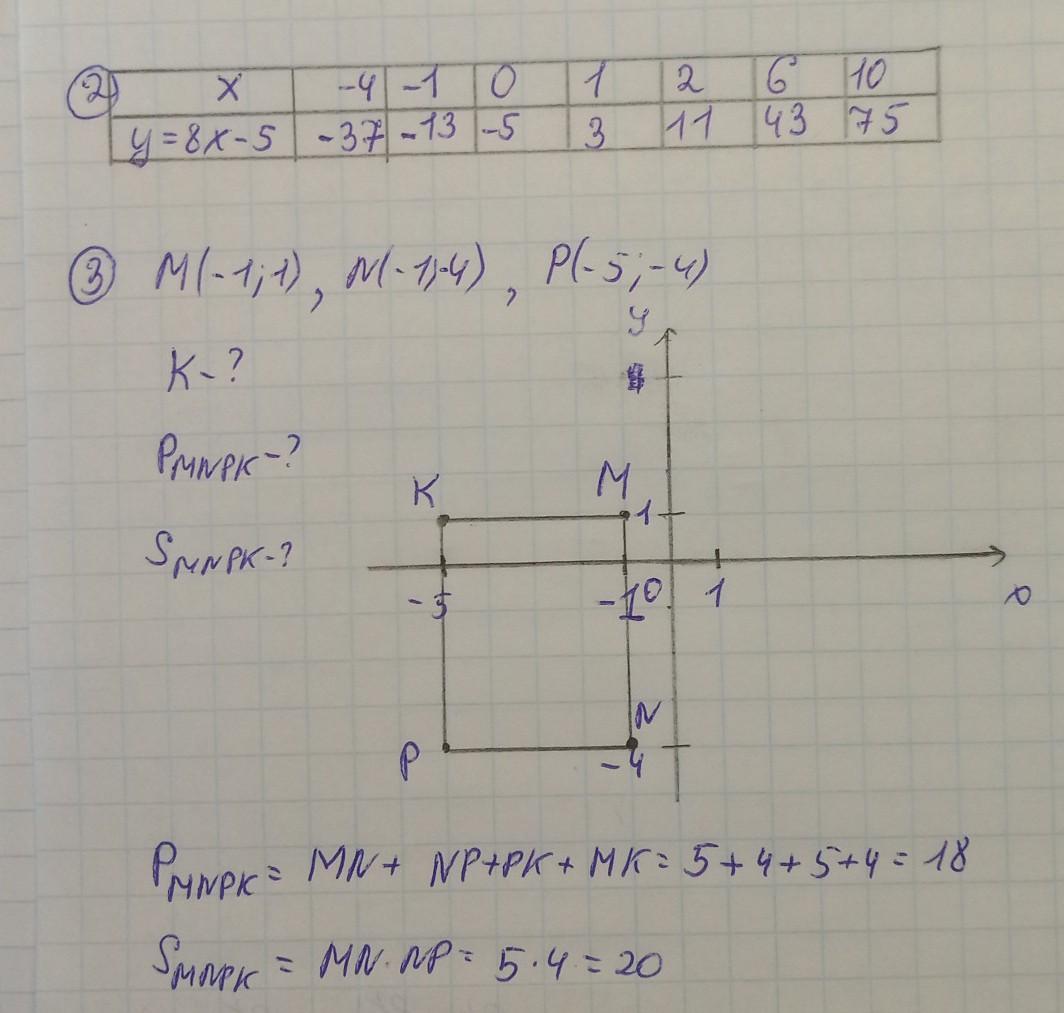 ② x -4 -1 0 1 2 6 10
y=8x-5 -37 -13 -5 3 11 43 75
③ M(-1;1), N(-1;-4), P(-5;-4)
y
K-?
P MNPK-?
K M
1
S MNPK-?
-5 -1 0 1 x
N
P -4
P MNPK = MN+ NP+PK+MK=5+4+5+4=18
S MNPK = MN·NP= 5·4=20